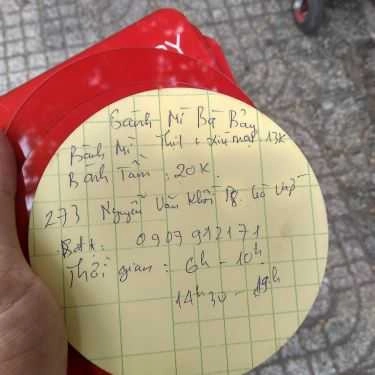 OY
Bánh Mì Bà Bảy
Bánh Mì Thịt + xíu mại 13K
Bánh Tầm : 20K.
273 Nguyễn Văn Khối P8. Gò Vấp
Sđt: 0907 912171
Thời gian: 6h - 10h
14h30 - 19h